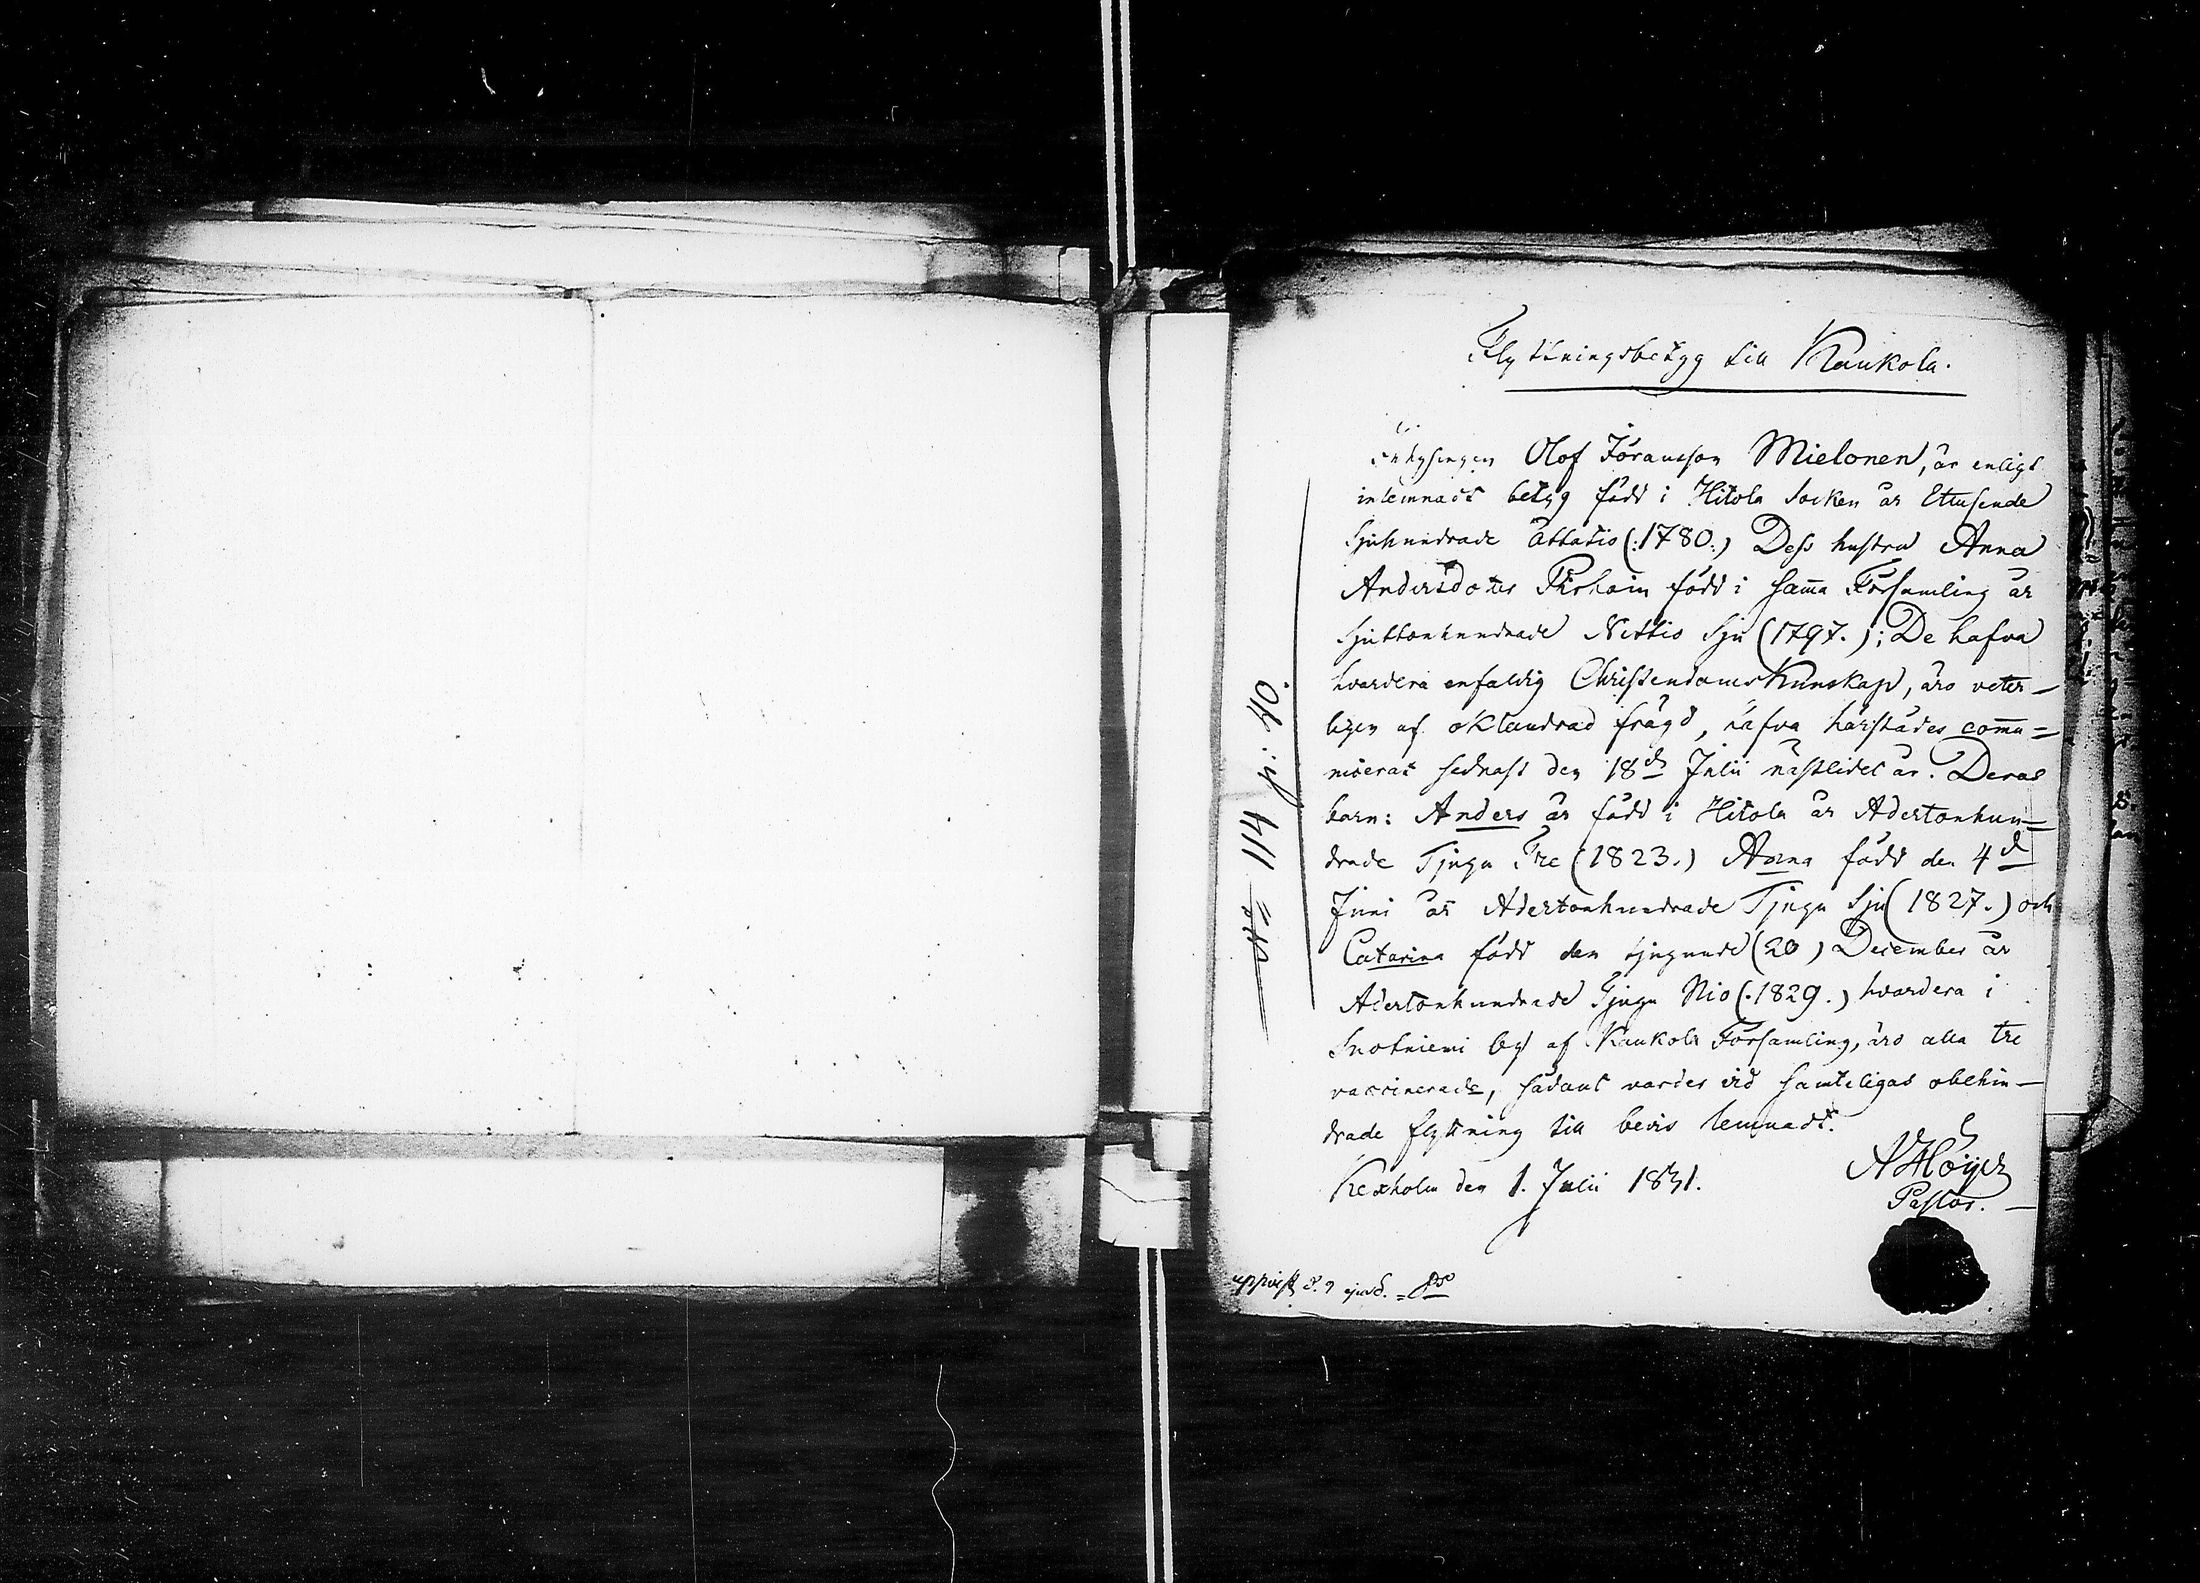 Flyttningsbetyg till Kaukola.
Inhysingen Olof Jöransson Mielonen, är enligt
inlemnadt betyg född i Hitola Socken år Ettusende
Sjuhundrade Åttatio (:1780:) Dess hustru Anna
Andersdoter född i samma Församling år
Sjuttonhundrade Nittio Sju (1797.); De hafva
hvardera enfaldig Christendoms Kunskap, äro veter-
ligen af oklandrad frägd, hafva härstädes commu=
nicerat sednast den 18de Julii nästlidet år. Deras
barn: Anders är född i Hitola år Adertonhun=
drade Tjugu Tre (1823.) Anna född den 4de
Juni år Adertonhundrade Tjugu Sju (1827.) och
Catarina född den tjugunde (20) December år
Adertonhundrade Tjugu Nio (:1829.) hvardera i
Suotniemi by af Kaukola Församling, äro alla tre
vaccinerade, sådant varder vid samteligas obehin-
drade flyttning till bevis lemnadt.
Kexholm den 1. Julii 1831.
A Höijer
Pastor.
uppvist d. 9 ejusd.
N:o 114 p. 40.